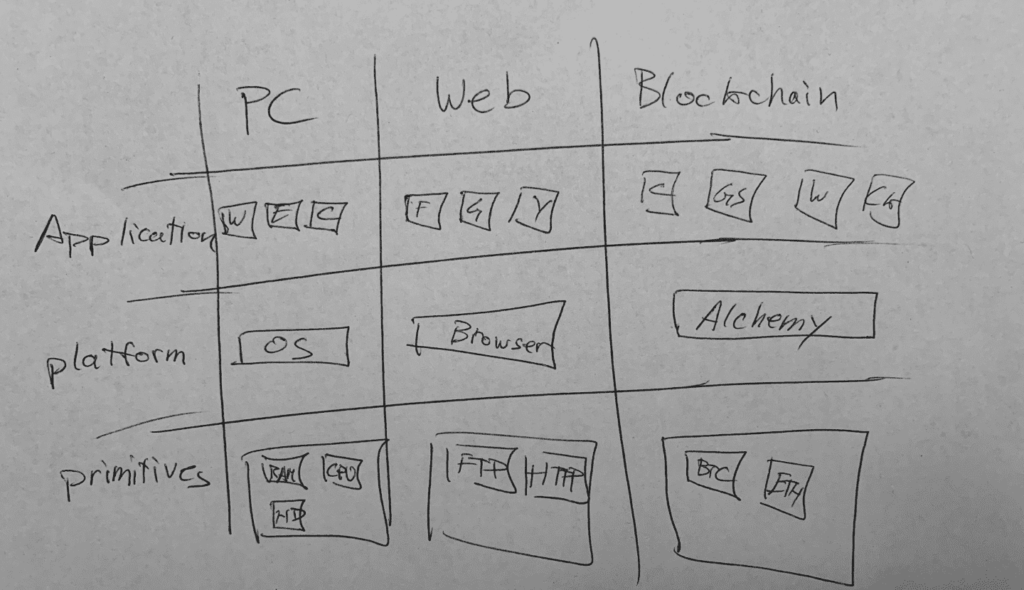 PC Web Blockchain
Application W E C F G Y C GS W
platform OS Browser Alchemy
primitives CPU FTP HTTP BTC ETH